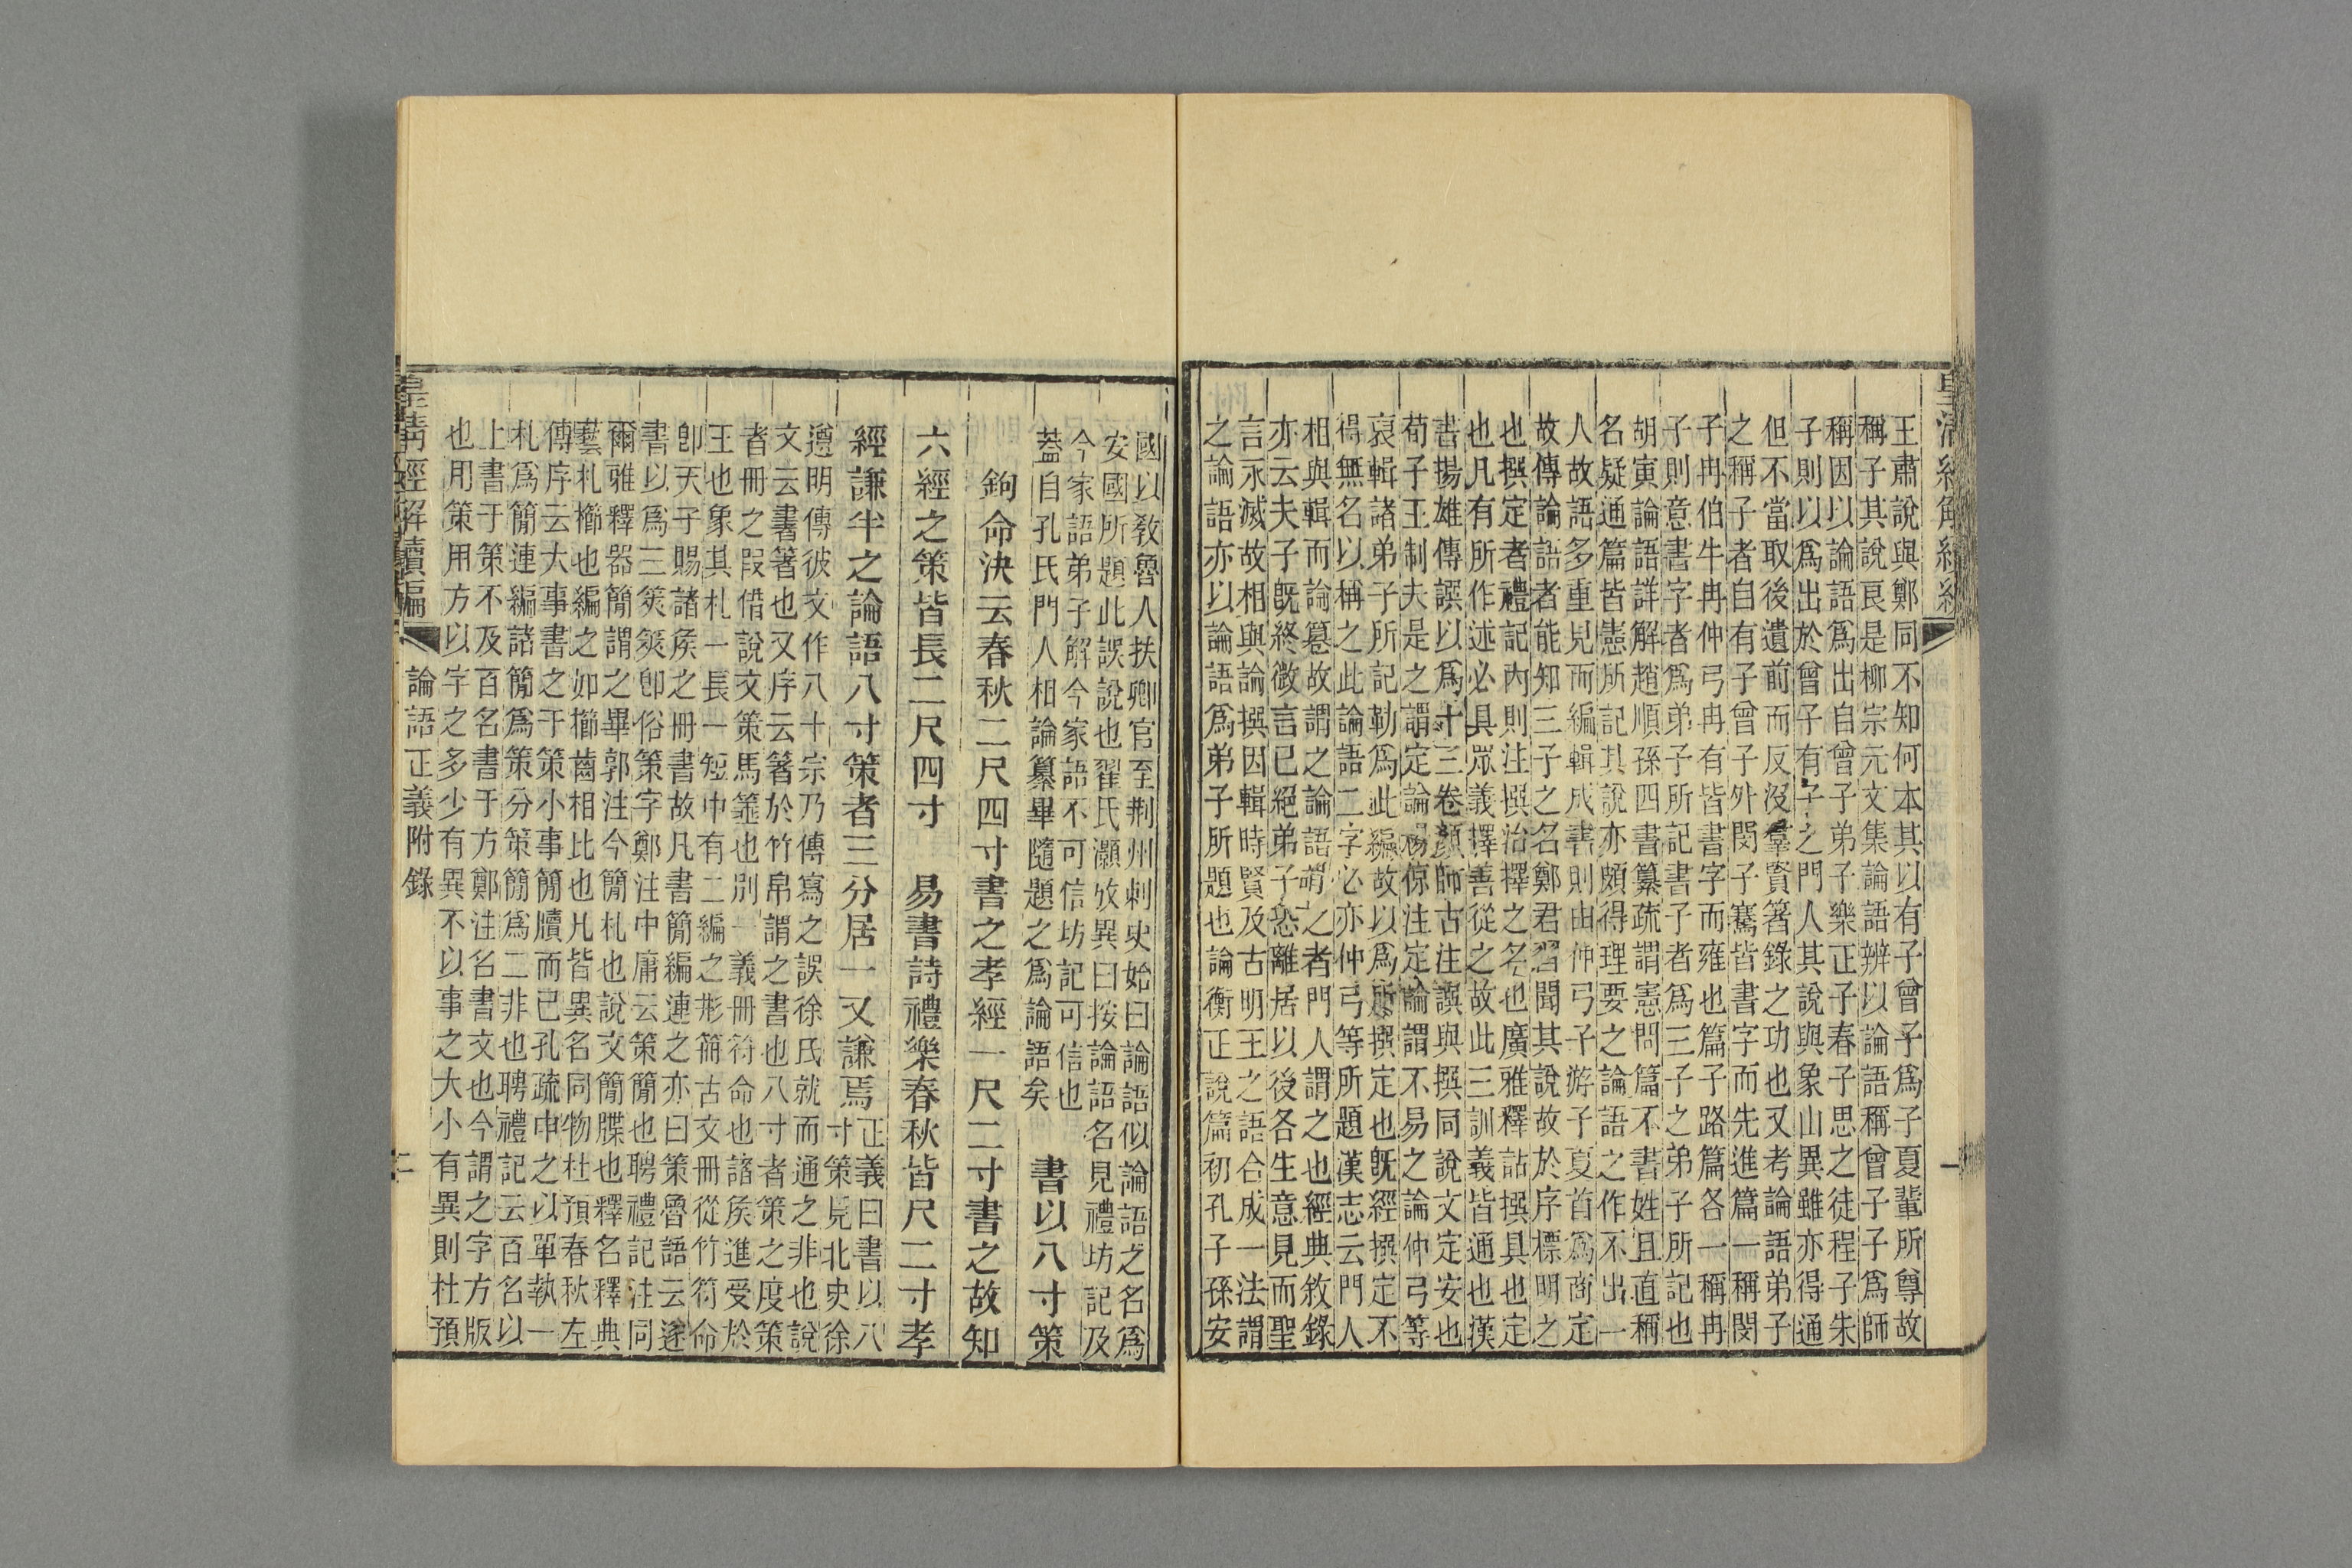 王肅說與鄭同不知何本其以有子曾子爲子夏輩所尊故
稱子其說良是柳宗元文集論語辨以論語稱曾子子爲師
稱因以論語爲出自曾子弟子樂正子春子思之徒程子朱
子則以爲出於曾子有子之門人其說與象山異雖亦得通
但不當取後遺前而反沒羣賢箸錄之功也又考論語弟子
之稱子者自有子曾子外閔子騫皆書字而先進篇一稱閔
子冉伯牛冉仲弓冉有皆書字而雍也篇子路篇各一稱冉
子則意書字者爲弟子所記書子者爲三子之弟子所記也
胡寅論語詳解趙順孫四書纂疏謂憲問篇不書姓且直稱
名疑通篇皆憲所記其說亦頗得理要之論語之作不出一
人故語多重見而編輯成書則由仲弓子游子夏首爲商定
故傳論語者能知三子之名鄭君習聞其說故於序標明之
也撰定者禮記內則注撰治擇之名也廣雅釋詁撰具也定
也凡有所作述必具眾義擇善從之故此三訓義皆通也漢
書揚雄傳譔以爲十三卷顏師古注譔與撰同說文定安也
荀子王制夫是之謂定論楊倞注定論謂不易之論仲弓等
裒輯諸弟子所記勒爲此編故以爲所撰定也旣經撰定不
得無名以稱之此論語二字必亦仲弓等所題漢志云門人
相與輯而論篹故謂之論語謂之者門人謂之也經典敘錄
亦云夫子旣終微言已絕弟子恐離居以後各生意見而聖
言永滅故相與論撰因輯時賢及古明王之語合成一法謂
之論語亦以論語爲弟子所題也論衡正說篇初孔子孫安
國以敎魯人扶卿官至荆州刺史始曰論語似論語之名爲
安國所題此誤說也翟氏灝攷異曰按論語名見禮坊記及
今家語弟子解今家語不可信坊記可信也
蓋自孔氏門人相論纂畢隨題之爲論語矣
書以八寸策
鉤命決云春秋二尺四寸書之孝經一尺二寸書之故知
六經之策皆長二尺四寸 易書詩禮樂春秋皆尺二寸孝
經謙半之論語八寸策者三分居一又謙焉
正義曰書以八
寸策見北史徐
遵明傳彼文作八十宗乃傳寫之誤徐氏就而通之非也說
文云書箸也又序云箸於竹帛謂之書也八寸者策之度策
者冊之叚借說文策馬箠也別一義冊符命也諸矦進受於
王也象其札一長一短中有二編之形𥳑古文冊從竹符命
卽天子賜諸矦之冊書故凡書簡編連之亦曰策魯語云遂
書以爲三筴筴卽俗策字鄭注中庸云策簡也聘禮記注同
爾雅釋器簡謂之畢郭注今簡札也說文簡牒也釋名釋典
藝札櫛也編之如櫛齒相比也凡皆異名同物杜預春秋左
傳序云大事書之于策小事簡牘而已孔疏申之以單執一
札爲簡連編諸簡爲策分策簡爲二非也聘禮記云百名以
上書于策不及百名書于方鄭注名書文也今謂之字方版
也用策用方以字之多少有異不以事之大小有異則杜預
皇淸經解續編
論語正義附錄
二